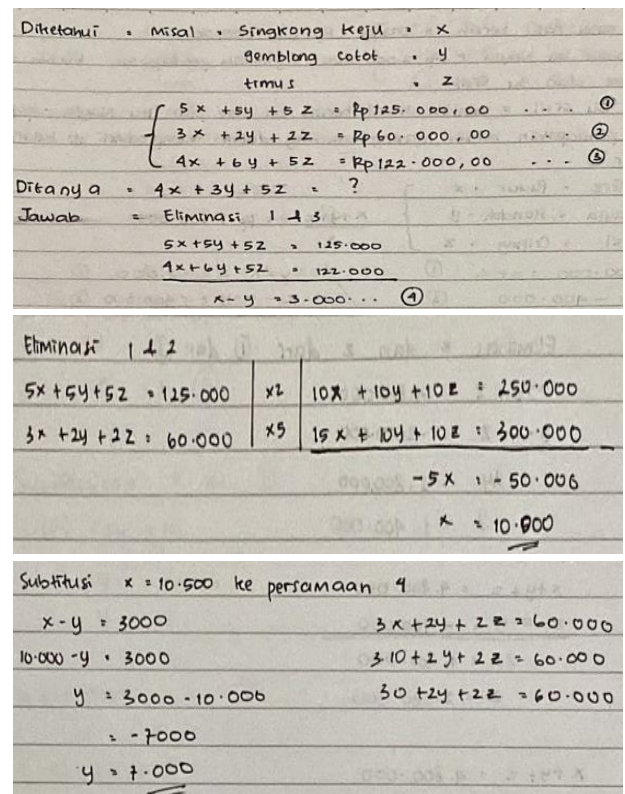 Diketahui = Misal = Singkong Keju = x
gemblong cotot = y
timus = z
5x + 5y + 5z = Rp 125.000,00 ... ①
3x + 2y + 2z = Rp 60.000,00 ... ②
4x + 6y + 5z = Rp 122.000,00 ... ③
Ditanya = 4x + 3y + 5z = ?
Jawab = Eliminasi 1 & 3
5x + 5y + 5z = 125.000
4x + 6y + 5z = 122.000
x - y = 3.000 ... ④
Eliminasi 1 & 2
5x + 5y + 5z = 125.000 | x2 | 10x + 10y + 10z = 250.000
3x + 2y + 2z = 60.000 | x5 | 15x + 10y + 10z = 300.000 -
-5x = -50.000
x = 10.000
Substitusi x = 10.500 ke persamaan 4
x - y = 3000
10.000 - y = 3000
y = 3000 - 10.000
= -7000
y = 7.000
3x + 2y + 2z = 60.000
3.10 + 2y + 2z = 60.000
30 + 2y + 2z = 60.000